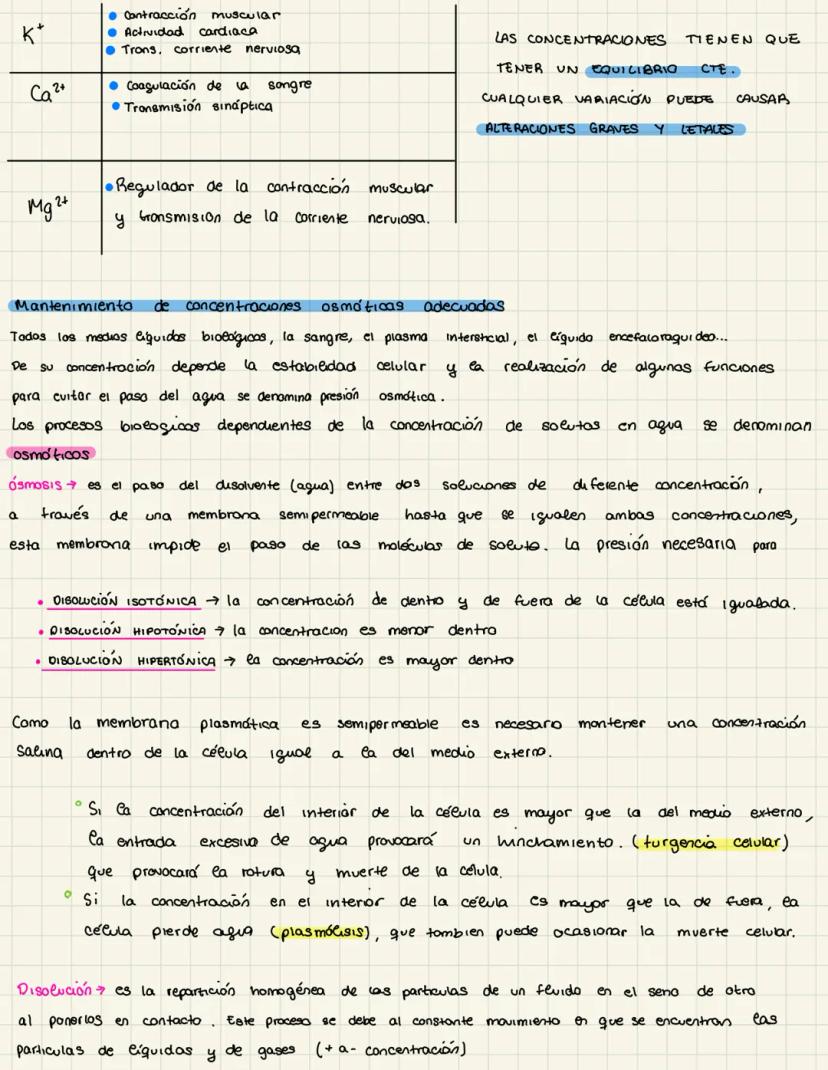 K⁺
• Contracción muscular
• Actividad cardiaca
• Trans. corriente nerviosa
Ca²⁺
• Coagulación de la sangre
• Transmisión sináptica
Mg²⁺
• Regulador de la contracción muscular
y transmisión de la corriente nerviosa.
LAS CONCENTRACIONES TIENEN QUE
TENER UN EQUILIBRIO CTE.
CUALQUIER VARIACIÓN PUEDE CAUSAR
ALTERACIONES GRAVES Y LETALES
Mantenimiento de concentraciones osmóticas adecuadas
Todos los medios líquidos biológicos, la sangre, el plasma intersticial, el líquido encefaloraquideo...
De su concentración depende la estabilidad celular y la realización de algunas funciones
para evitar el paso del agua se denomina presión osmótica.
Los procesos biologicos dependientes de la concentración de solutos en agua se denominan
osmóticos
ósmosis → es el paso del disolvente (agua) entre dos soluciones de diferente concentración,
a través de una membrana semipermeable hasta que se igualen ambas concentraciones,
esta membrana impide el paso de las moléculas de soluto. La presión necesaria para
• DISOLUCIÓN ISOTÓNICA → la concentración de dentro y de fuera de la célula está igualada.
• DISOLUCIÓN HIPOTÓNICA → la concentracion es menor dentro
• DISOLUCIÓN HIPERTÓNICA → la concentración es mayor dentro
Como la membrana plasmática es semipermeable es necesario mantener una concentración
salina dentro de la célula igual a la del medio externo.
° Si la concentración del interior de la célula es mayor que la del medio externo,
la entrada excesiva de agua provocará un hinchamiento. (turgencia celular)
que provocará la rotura y muerte de la célula.
° Si la concentración en el interior de la célula es mayor que la de fuera, la
célula pierde agua (plasmólisis), que tambien puede ocasionar la muerte celular.
Disolución → es la repartición homogénea de las particulas de un fluido en el seno de otro
al ponerlos en contacto. Este proceso se debe al constante movimiento en que se encuentran las
particulas de líquidos y de gases (+ a - concentración)